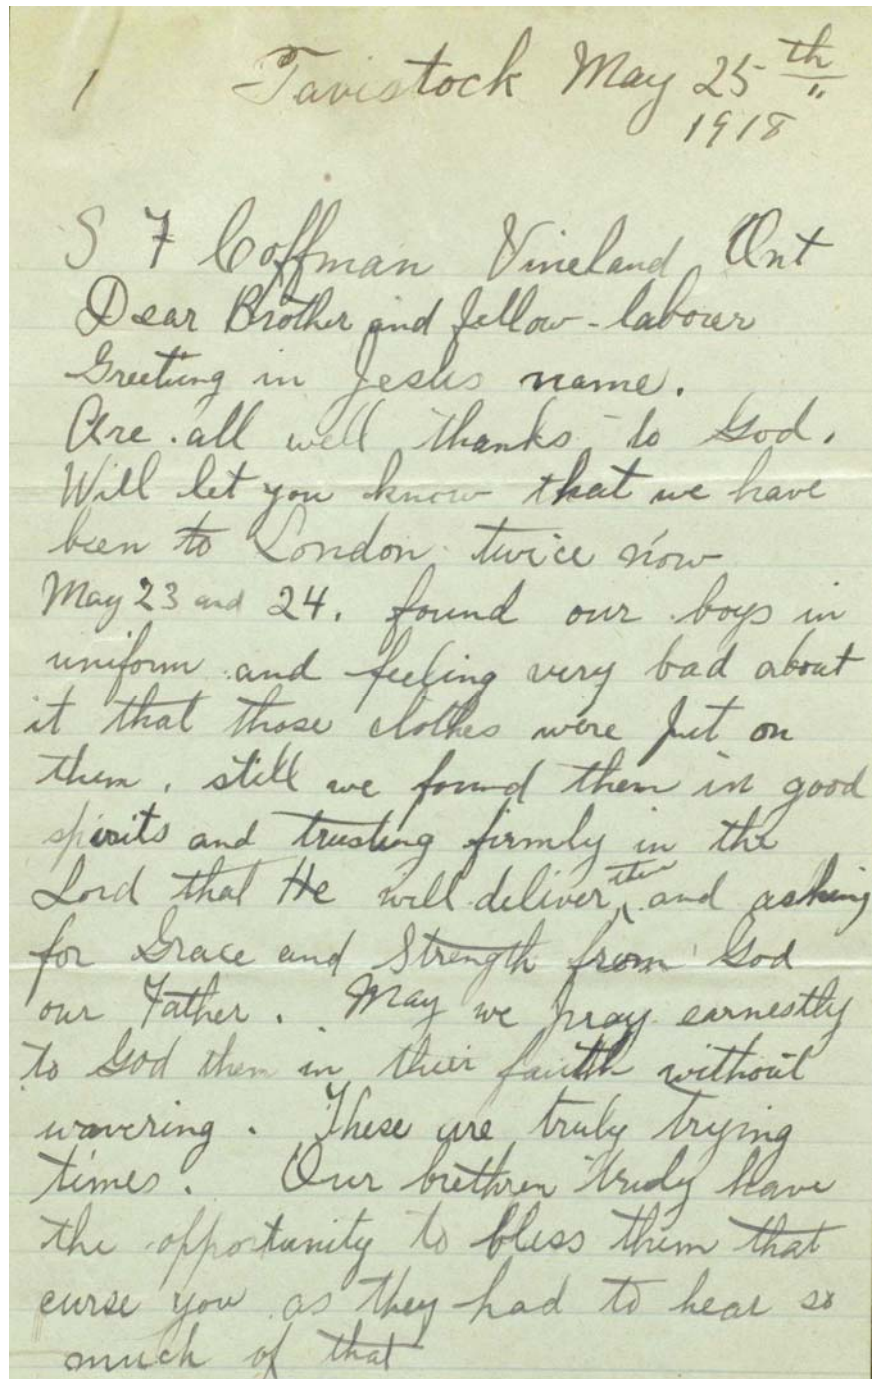 1 Tavistock May 25th
1918
S F Coffman Vineland Ont
Dear Brother and fellow-labourer
Greeting in Jesus name.
Are all well thanks to God.
Will let you know that we have
been to London twice now
May 23 and 24. found our boys in
uniform and feeling very bad about
it that those clothes were put on
them. still we found them in good
spirits and trusting firmly in the
Lord that He will deliver them and asking
for Grace and Strength from God
our Father. May we pray earnestly
to God them in their faith without
wavering. These are truly trying
times. Our brethren truly have
the opportunity to bless them that
curse you as they had to hear so
much of that